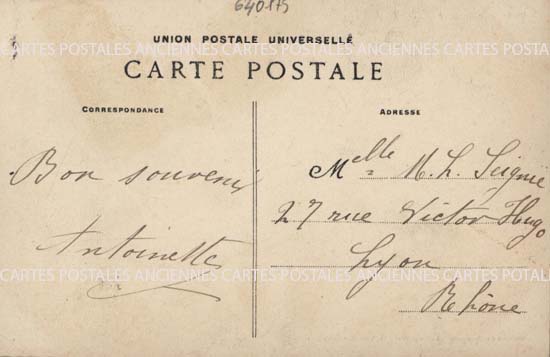 640175
UNION POSTALE UNIVERSELLE
CARTES POSTALES ANCIENNES CARTES POSTALES ANCIENNES CARTES POSTALES
CARTE POSTALE
CORRESPONDANCE
ADRESSE
Bon souvenir
Antoinette
Melle M. L.
27 rue Victor Hugo
Lyon
CARTES POSTALES ANCIENNES CARTES POSTALES ANCIENNES CARTES POSTALES
Rhône